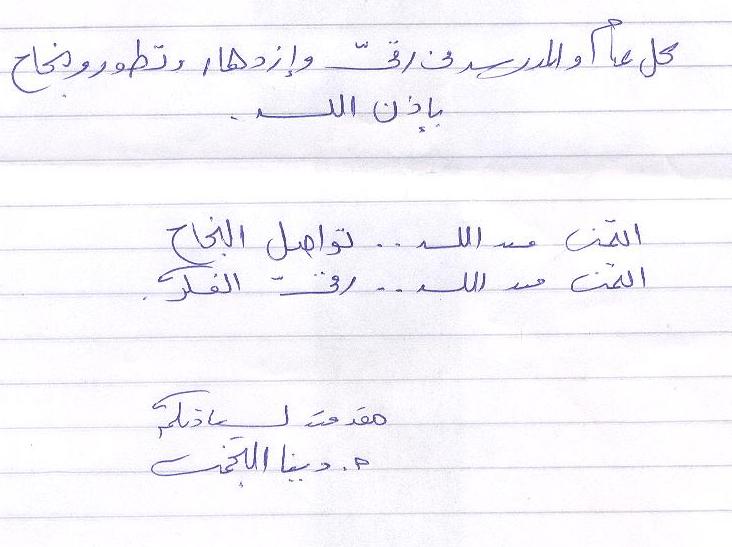 كل عام والمدرسة فى رقىّ وإزدهار وتطور ونجاح
بإذن الله .
اتمنى من الله .. تواصل النجاح
اتمنى من الله .. رقىّ الفكر .
مقدمته لسيادتكم
م. دينا